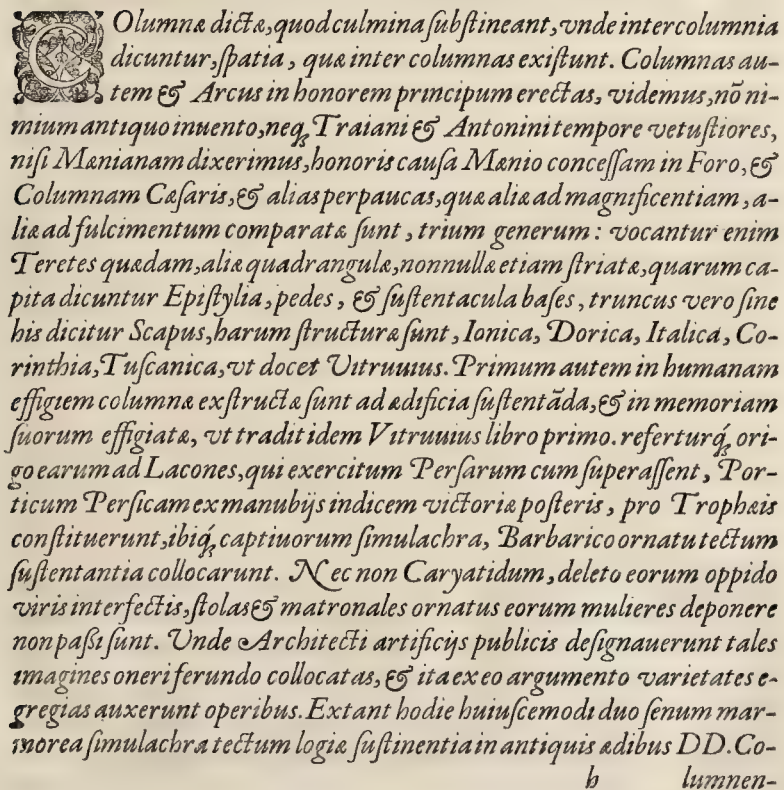 COlumnæ dictæ, quod culmina ſubſtineant, vnde intercolumnia
dicuntur, ſpatia, quæ inter columnas exiſtunt. Columnas au-
tem & Arcus in honorem principum erectas, videmus, nō ni-
mium antiquo inuento, neq; Traiani & Antonini tempore vetuſtiores,
niſi Mænianam dixerimus, honoris cauſa Mænio conceſſam in Foro, &
Columnam Cæſaris, & alias perpaucas, quæ aliæ ad magnificentiam, a-
liæ ad fulcimentum comparatæ ſunt, trium generum: vocantur enim
Teretes quædam, aliæ quadrangulæ, nonnullæ etiam ſtriatæ, quarum ca-
pita dicuntur Epiſtylia, pedes, & ſuſtentacula baſes, truncus vero ſine
his dicitur Scapus, harum ſtructuræ ſunt, Ionica, Dorica, Italica, Co-
rinthia, Tuſcanica, vt docet Vitruuius. Primum autem in humanam
effigiem columnæ exſtructæ ſunt ad ædificia ſuſtentāda, & in memoriam
ſuorum effigiatæ, vt tradit idem Vitruuius libro primo. referturq́; ori-
go earum ad Lacones, qui exercitum Perſarum cum ſuperaſſent, Por-
ticum Perſicam ex manubijs indicem victoriæ poſteris, pro Trophæis
conſtituerunt, ibiq́; captiuorum ſimulachra, Barbarico ornatu tectum
ſuſtentantia collocarunt. Nec non Caryatidum, deleto eorum oppido
viris interfectis, ſtolas & matronales ornatus eorum mulieres deponere
non paßi ſunt. Unde Architecti artificijs publicis deſignauerunt tales
imagines oneri ferundo collocatas, & ita ex eo argumento varietates e-
gregias auxerunt operibus. Extant hodie huiuſcemodi duo ſenum mar-
morea ſimulachra tectum logiæ ſuſtinentia in antiquis ædibus DD. Co-
h lumnen-